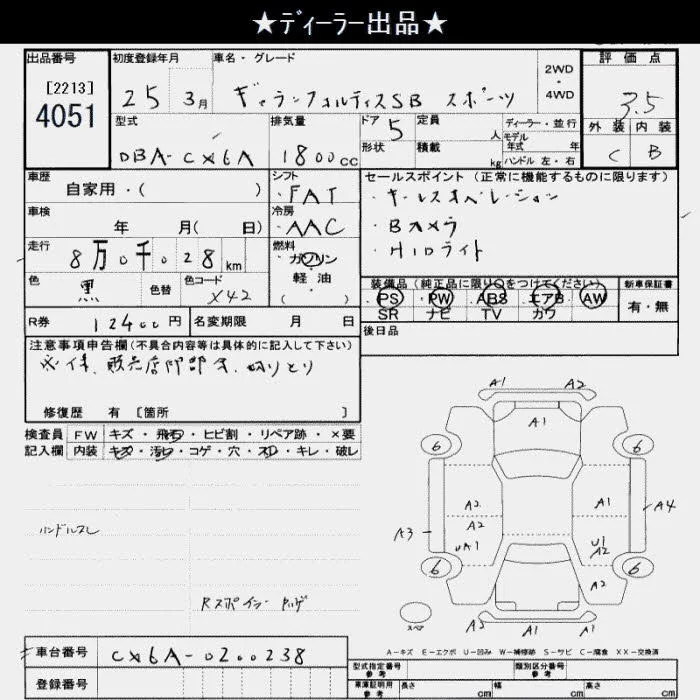 ★ディーラー出品★
出品番号
[2213]
4051
初度登録年月
25 3月
車名・グレード
ギャランフォルティスSB スポーツ
2WD
・
4WD
評価点
3.5
外装 内装
C B
型式
DBA-CX6A
排気量
1800cc
ドア 5
形状
定員 人
積載 kg
ディーラー・並行
モデル
年式 年
ハンドル 左・右
車歴
自家用・( )
シフト
FAT
セールスポイント (正常に機能するものに限ります)
・キーレスオペレーション
・Bカメラ
・HIDライト
車検
年 月( 日)
冷房
AAC
走行
8万0千028km
燃料
ガソリン
・
軽油
( )
色
黒
色替
色コード
X42
装備品(純正品に限り○をつけてください)
PS・PW・ABS・エアB・AW
SR ナビ TV カワ
新車保証書
有・無
R券 12400円
名変期限 月 日
後日品
注意事項申告欄(不具合内容等は具体的に記入して下さい)
切りとり
修復歴 有 [箇所 ]
検査員
記入欄
FW キズ・飛石・ヒビ割・リペア跡・×要
内装 キズ・汚れ・コゲ・穴・スレ・キレ・破レ
A1 A2
A1
6 6
A2 A1
A2
A3 A4
UA1 U1
A2
6 6
A2
スペア
A3 A1 A1
ハンドルスレ
Rスポイラー
A-キズ E-エクボ U-凹み W-補修跡 S-サビ C-腐食 XX-交換済
車台番号
CX6A-0200238
登録番号
型式指定番号
参考
類別区分番号
参考
車庫証明用
参考
長さ cm 幅 cm 高さ cm